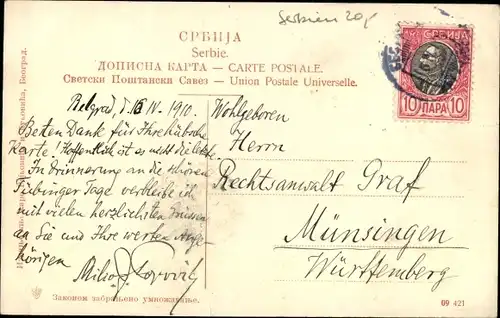 Serbien 20,-
СРБИЈА
Serbie.
ДОПИСНА КАРТА — CARTE POSTALE.
Светски Поштански Савез — Union Postale Universelle.
СРБИЈА
10 ПАРА 10
Belgrad, d. 16 IV. 1910.
Besten Dank für Ihre hübsche
Karte! Hoffentlich ist es nicht die letzte.
In Erinnerung an die schönen
Tübinger Tage verbleibe ich
mit vielen herzlichsten Grüssen
an Sie und Ihre werten Ange-
hörigen
Wohlgeboren
Herrn
Rechtsanwalt Graf
Münsingen
Württemberg
Законом забрањено умножавање.
09 421